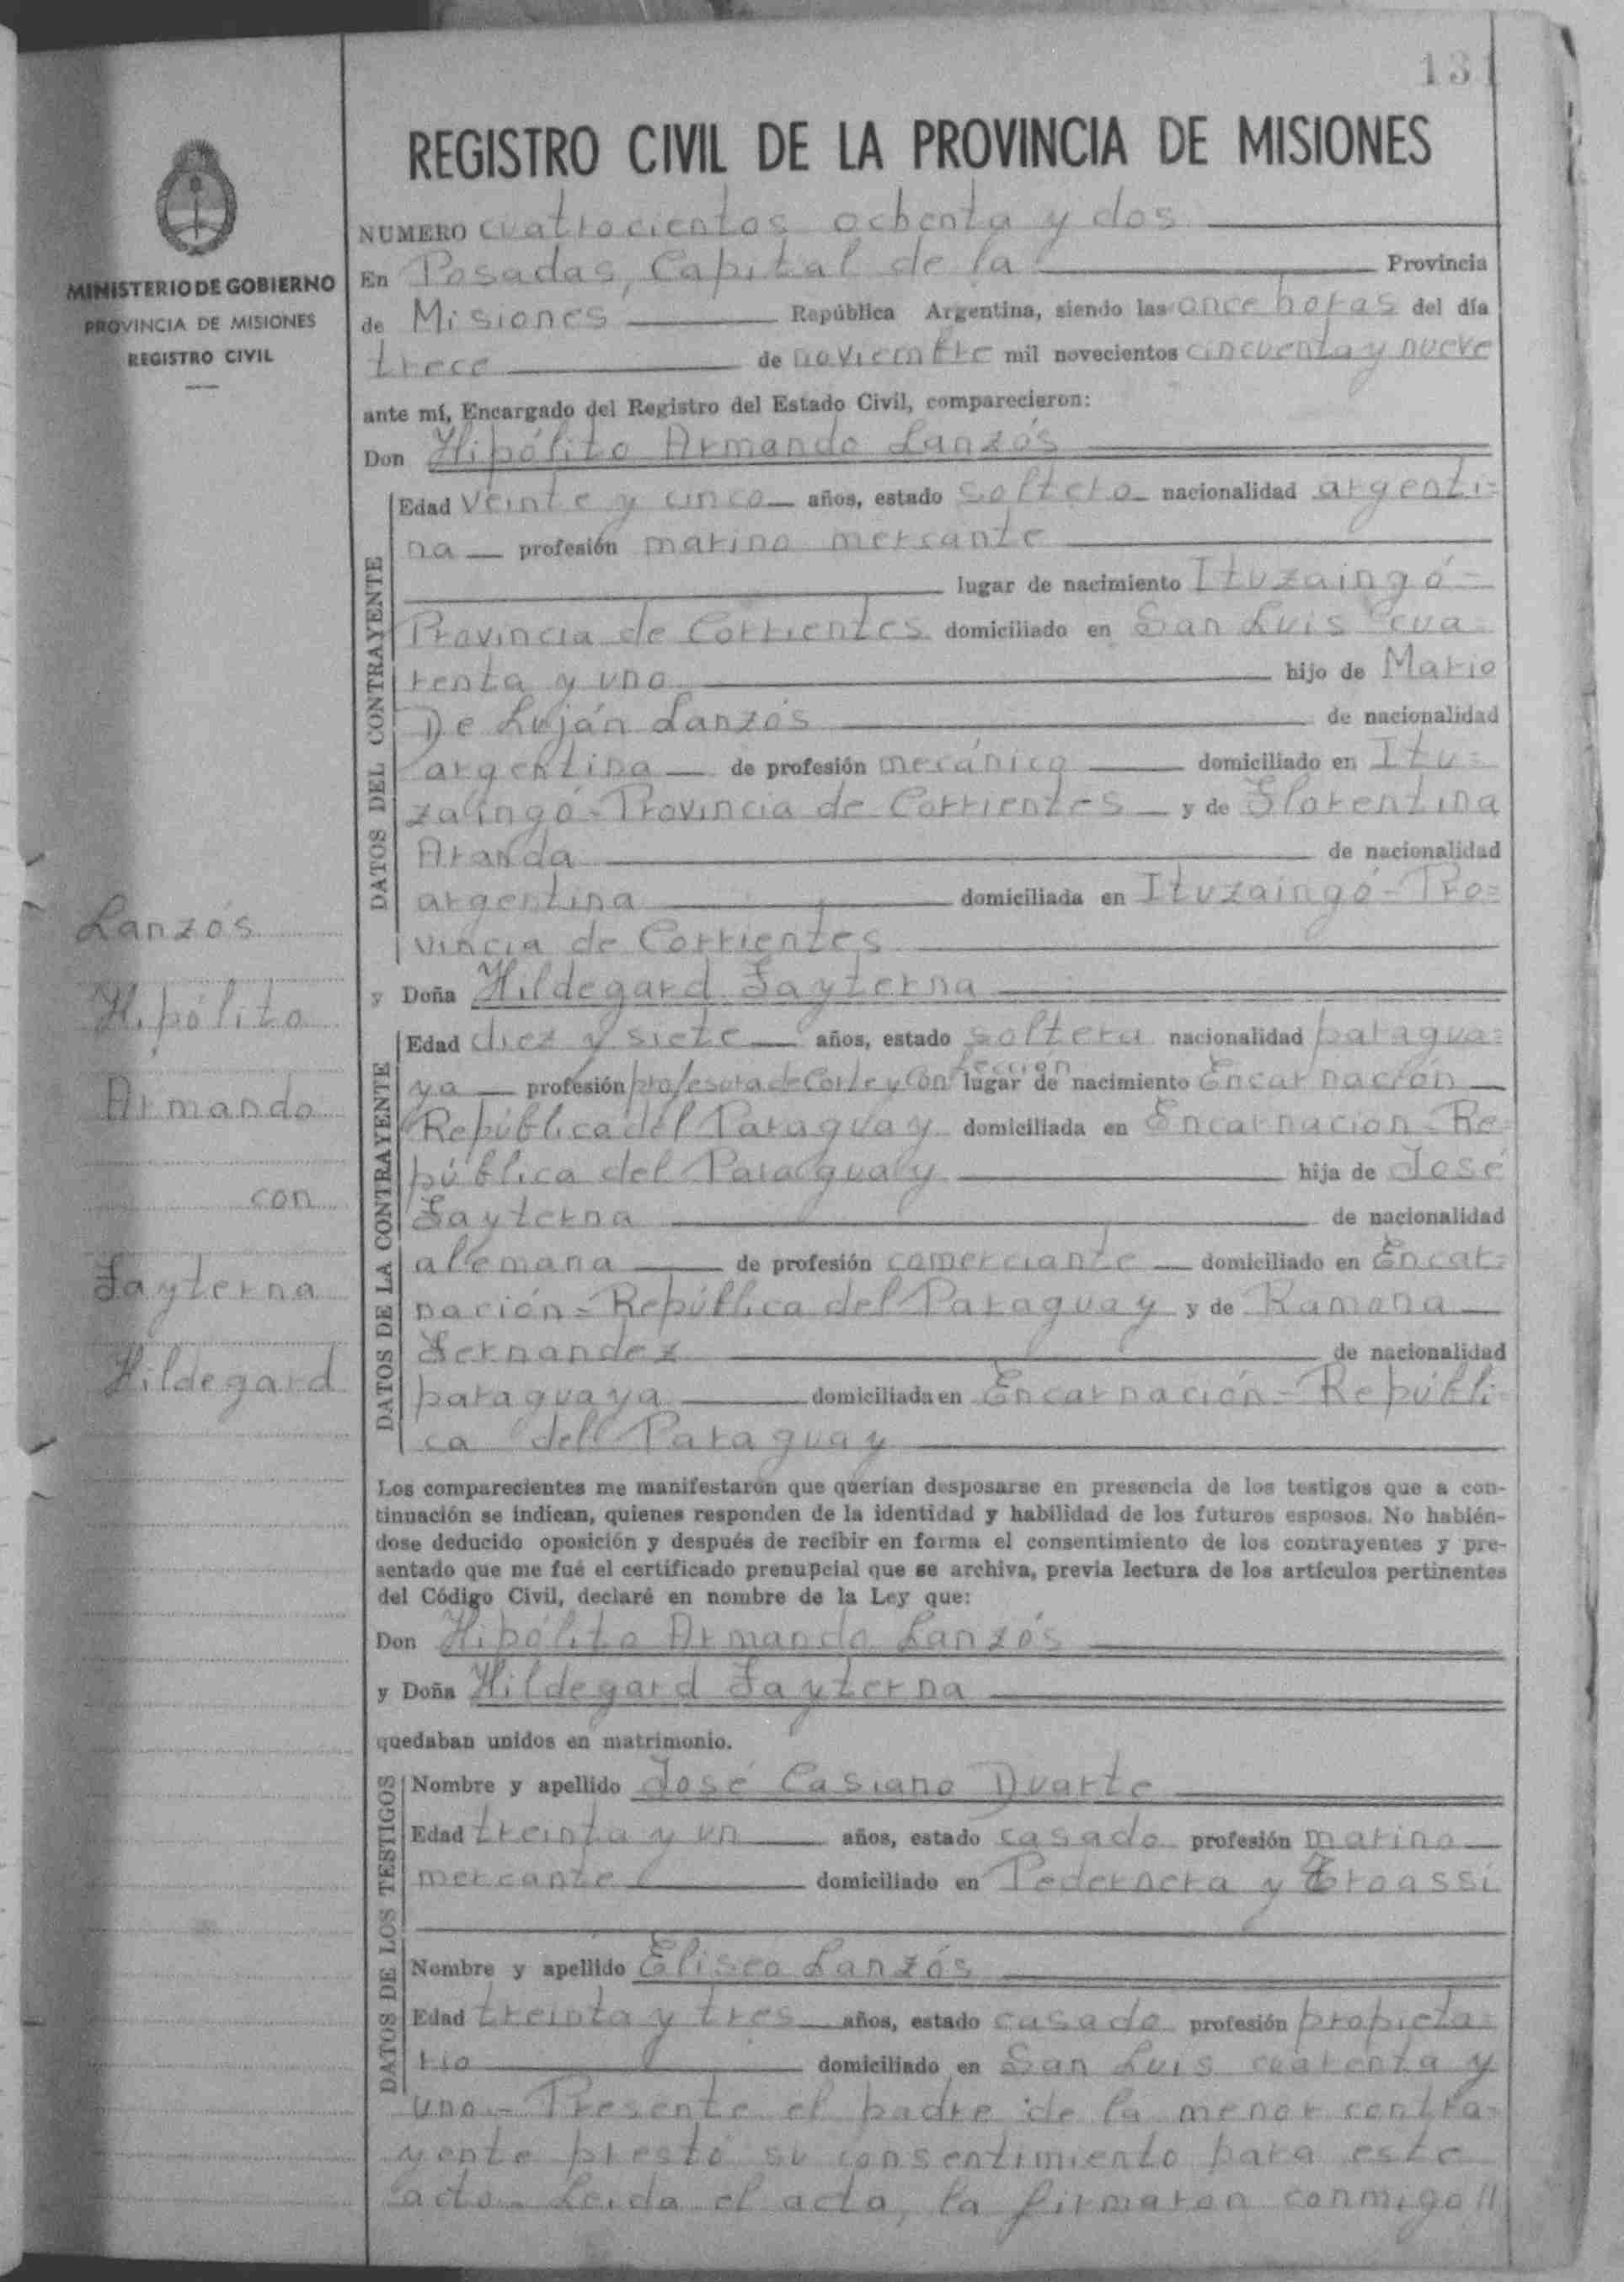 131
REGISTRO CIVIL DE LA PROVINCIA DE MISIONES
MINISTERIO DE GOBIERNO
PROVINCIA DE MISIONES
REGISTRO CIVIL
NUMERO cuatrocientos ochenta y dos
En Posadas, Capital de la Provincia
de Misiones República Argentina, siendo las once horas del día
trece de noviembre mil novecientos cincuenta y nueve
ante mí, Encargado del Registro del Estado Civil, comparecieron:
Don Hipólito Armando Lanzós
DATOS DEL CONTRAYENTE
Edad veinte y cinco años, estado soltero nacionalidad argenti=
na profesión marino mercante
lugar de nacimiento Ituzaingó-
Provincia de Corrientes domiciliado en San Luis cua=
renta y uno hijo de Mario
De Luján Lanzós de nacionalidad
argentina de profesión mecánico domiciliado en Itu=
zaingó-Provincia de Corrientes y de Florentina
Aranda de nacionalidad
argentina domiciliada en Ituzaingó-Pro=
vincia de Corrientes
y Doña Hildegard Fayterna
DATOS DE LA CONTRAYENTE
Edad diez y siete años, estado soltera nacionalidad paragua=
ya profesión profesora de Corte y Confección lugar de nacimiento Encarnación
República del Paraguay domiciliada en Encarnación-Re=
pública del Paraguay hija de José
Fayterna de nacionalidad
alemana de profesión comerciante domiciliado en Encar=
nación-República del Paraguay y de Ramona
Fernandez de nacionalidad
paraguaya domiciliada en Encarnación-Repúbli=
ca del Paraguay
Los comparecientes me manifestaron que querían desposarse en presencia de los testigos que a con-
tinuación se indican, quienes responden de la identidad y habilidad de los futuros esposos. No habién-
dose deducido oposición y después de recibir en forma el consentimiento de los contrayentes y pre-
sentado que me fué el certificado prenupcial que se archiva, previa lectura de los artículos pertinentes
del Código Civil, declaré en nombre de la Ley que:
Don Hipólito Armando Lanzós
y Doña Hildegard Fayterna
quedaban unidos en matrimonio.
DATOS DE LOS TESTIGOS
Nombre y apellido José Casiano Duarte
Edad treinta y un años, estado casado profesión marino
mercante domiciliado en Pedernera y
Nombre y apellido Eliseo Lanzós
Edad treinta y tres años, estado casado profesión propieta=
rio domiciliado en San Luis cuarenta y
uno.- Presente el padre de la menor contra=
yente prestó su consentimiento para este
acto.- Leida el acta, la firmaron conmigo//
Lanzós
Hipólito
Armando
con
Fayterna
Hildegard